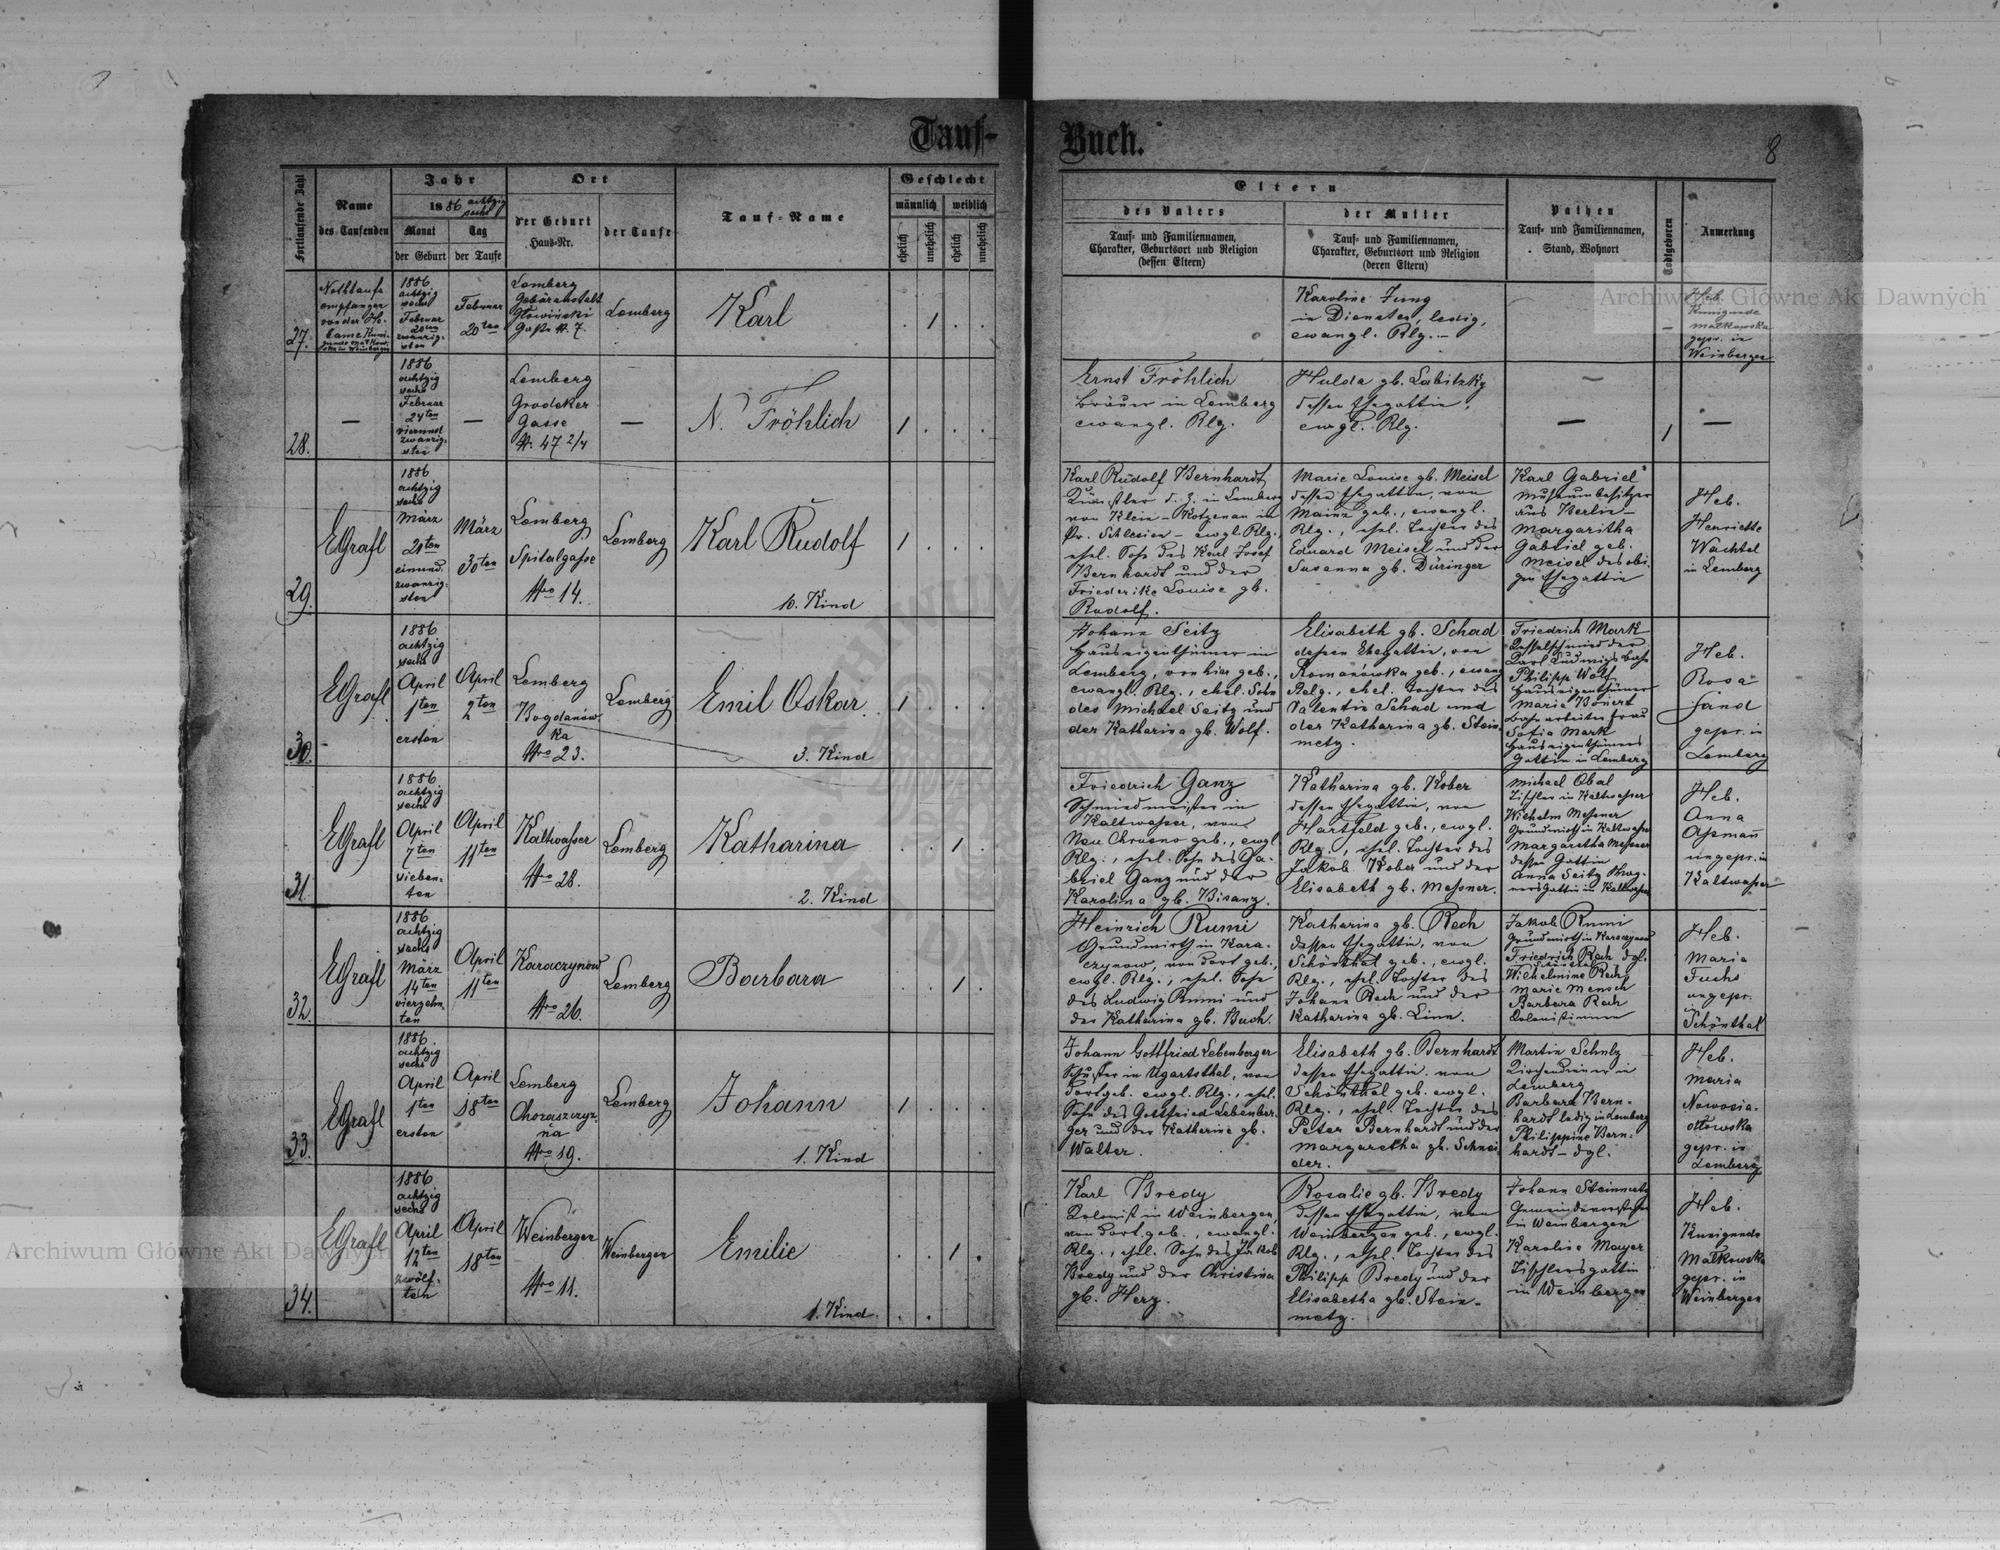 Tauf-
Buch.
8
Fortlaufende Zahl
Name
des Taufenden
Jahr
1886 achtzig
sechs
Monat
der Geburt
Tag
der Taufe
Ort
der Geburt
Haus-Nr.
der Taufe
Tauf-Name
Geschlecht
männlich
weiblich
ehelich
unehelich
ehelich
unehelich
Eltern
des Vaters
Tauf- und Familiennamen,
Charakter, Geburtsort und Religion
(dessen Eltern)
der Mutter
Tauf- und Familiennamen,
Charakter, Geburtsort und Religion
(deren Eltern)
Pathen
Tauf- und Familiennamen,
Stand, Wohnort
Todtgeboren
Anmerkung
27.
Nothtaufe
empfangen
von der He-
bame Kuni-
1886
achtzig
sechs
Februar
20ten
zwanzig-
sten
Februar
20ten
Lemberg
Gebäranstalt
Głowiński
Gasse N. 7.
Lemberg
Karl
1
Karoline Jung
in Diensten, ledig,
ewangl. Rlg. –
Heb.
Kunigunde
Matkowska
gepr. in
Weinbergen
28.
—
1886
achtzig
sechs
Februar
24ten
vierund
zwanzig-
sten
—
Lemberg
Grodeker
Gasse
N. 47 2/4
—
N. Fröhlich
1
Ernst Fröhlich
Bräuer in Lemberg
ewangl. Rlg.
Hulda gb. Labitzky
dessen Ehegattin,
ewgl. Rlg.
—
1
—
29.
EGrafl
1886
achtzig
sechs
März
21ten
einund-
zwanzig-
sten
März
30ten
Lemberg
Spitalgasse
Nro 14.
Lemberg
Karl Rudolf
10. Kind
1
Karl Rudolf Bernhardt
Künstler d. Z. in Lemberg
von Klein-Kotzenau in
Pr. Schlesien – ewgl. Rlg.
ehel. Sohn des Karl Josef
Bernhardt und der
Friederike Louise gb.
Rudolf.
Marie Louise gb. Meisel
dessen Ehegattin, von
Mainz geb., ewangl.
Rlg., ehel. Tochter des
Eduard Meisel und der
Susanna gb. Düringer
Karl Gabriel
Museumbesitzer
aus Berlin –
Margaritha
Gabriel geb.
Meisel des obi-
gen Ehegattin
Heb.
Henriette
Wachtel
in Lemberg
30.
EGrafl
1886
achtzig
sechs
April
1ten
ersten
April
2ten
Lemberg
Bogdanów-
ka
Nro 23.
Lemberg
Emil Oskar
3. Kind
1
Johann Seitz
Hauseigenthümer in
Lemberg, von hier geb.,
ewangl. Rlg., ehel. Sohn
des Michael Seitz und
der Katharina gb. Wolf.
Elisabeth gb. Schad
dessen Ehegattin, von
Romanówka geb., ewang
Relg., ehel. Tochter des
Valentin Schad und
der Katharina gb. Stein-
metz.
Friedrich Mark
Kesselschmied der
Karl Ludwigs Bahn
Philipp Wolf
Hauseigenthümer
Maria Bonert
Bahnarbeiters Frau
Sofia Mark
Hauseigenthümers
Gattin in Lemberg
Heb.
Rosa
Sand
gepr. in
Lemberg
31.
EGrafl
1886
achtzig
sechs
April
7ten
sieben-
ten
April
11ten
Kaltwasser
Nro 28.
Lemberg
Katharina
2. Kind
1
Friedrich Ganz
Schmiedmeister in
Kaltwasser, von
Neu Chrusno geb., ewgl
Rlg., ehel. Sohn des Ga-
briel Ganz und der
Karolina gb. Bisanz.
Katharina gb. Kober
dessen Ehegattin, von
Hartfeld geb., ewgl.
Rlg., ehel. Tochter des
Jakob Kober und der
Elisabeth gb. Messner.
Michael Obal
Tischler in Kaltwasser
Wilhelm Messner
Grundwirth in Kaltwasser
Margaretha Messner
dessen Gattin
Anna Seitz Wag-
ners Gattin in Kaltwasser
Heb.
Anna
Assmañ
ungepr. in
Kaltwasser
32.
EGrafl
1886
achtzig
sechs
März
14ten
vierzehn-
ten
April
11ten
Karaczynow
Nro 26.
Lemberg
Barbara
1
Heinrich Rumi
Grundwirth in Kara-
czynow, von dort geb.,
ewgl. Rlg., ehel. Sohn
des Ludwig Rumi und
der Katharina gb. Buch.
Katharina gb. Rech
dessen Ehegattin, von
Schönthal geb., ewgl.
Rlg., ehel. Tochter des
Johann Rech und der
Katharina gb. Linn.
Jakob Rumi
Grundwirth in Karaczynow
Friedrich Rech dgl.
Wilhelmine Rech
Marie Mensch
Barbara Rech
Kolonistinnen
Heb.
Maria
Fuchs
ungepr.
in
Schönthal
33.
EGrafl
1886.
achtzig
sechs
April
1ten
ersten
April
18ten
Lemberg
Choraszczyz-
na
Nro 19.
Lemberg
Johann
1. Kind
1
Johann Gottfried Lebenberger
Schuster in Ugartsthal, von
dort geb. ewgl. Rlg., ehel.
Sohn des Gottfried Lebenber-
ger und der Katharine gb.
Walter.
Elisabeth gb. Bernhardt
dessen Ehegattin von
Schönthal geb. ewgl.
Rlg., ehel. Tochter des
Peter Bernhardt und der
Margaretha gb. Schnei-
der.
Martin Schulz
Kirchendiener in
Lemberg
Barbara Bern-
hardt ledig in Lemberg
Philippine Bern-
hardt – dgl.
Heb.
Maria
Nowosia-
dłowska
gepr. in
Lemberg
34.
EGrafl
1886
achtzig
sechs
April
12ten
zwölf-
ten
April
18ten
Weinbergen
Nro 11.
Weinbergen
Emilie
1. Kind
1
Karl Bredy
Kolonist in Weinbergen,
von dort geb., ewangl.
Rlg., ehel. Sohn des Jakob
Bredy und der Christina
gb. Herz.
Rosalie gb. Bredy
dessen Ehegattin, von
Weinbergen geb., ewgl.
Rlg., ehel. Tochter des
Philipp Bredy und der
Elisabetha gb. Stein-
metz.
Johann Steinmetz
Gemeindevorsteher
in Weinbergen
Karoline Mayer
Tischlersgattin
in Weinbergen
Heb.
Kunigunde
Matkowska
gepr. in
Weinbergen
Archiwum Główne Akt Dawnych
Archiwum Główne Akt Dawnych